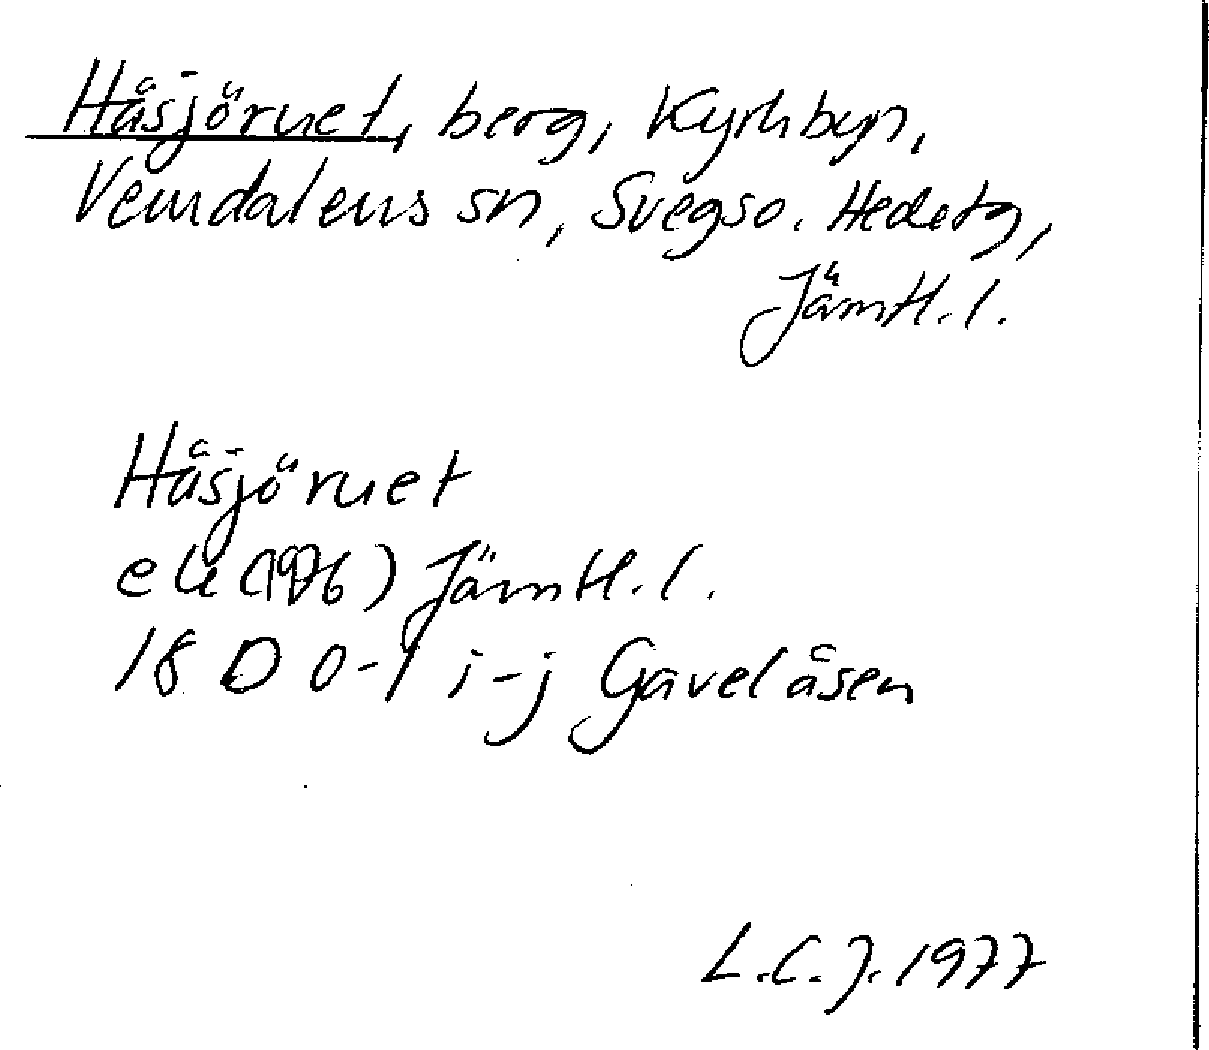 Håsjöruet, berg, Kyrkbyn,
Vemdalens sn, Svegs o. Hede tg,
Jämtl. l.
Håsjöruet
ek (1976) Jämtl. l.
18 D 0-1 i-j Gavelåsen
L.C.J. 1977